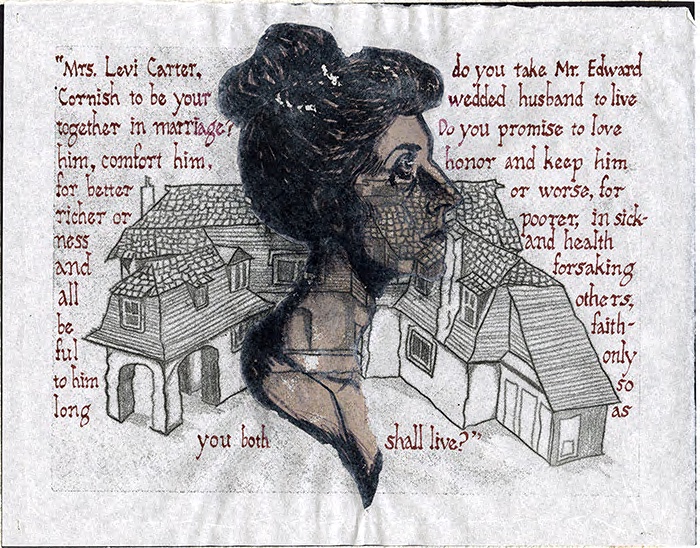 "Mrs. Levi Carter, do you take Mr. Edward
Cornish to be your wedded husband to live
together in marriage? Do you promise to love
him, comfort him, honor and keep him
for better or worse, for
richer or poorer, in sick-
ness and health
and forsaking
all others,
be faith-
ful only
to him so
long as
you both shall live?"